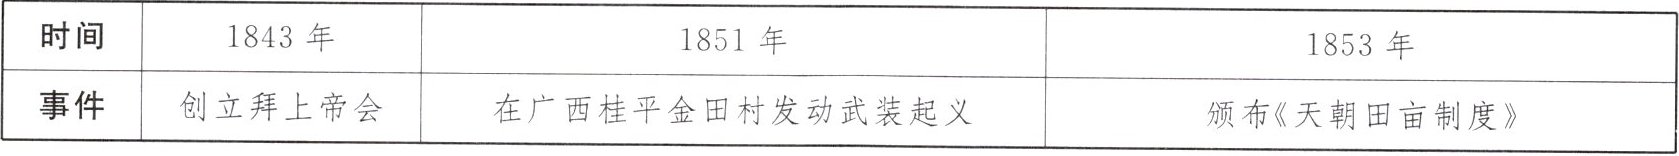 时间 1843 年 1851 年 1853 年
事件 创立拜上帝会 在广西桂平金田村发动武装起义 颁布《天朝田亩制度》